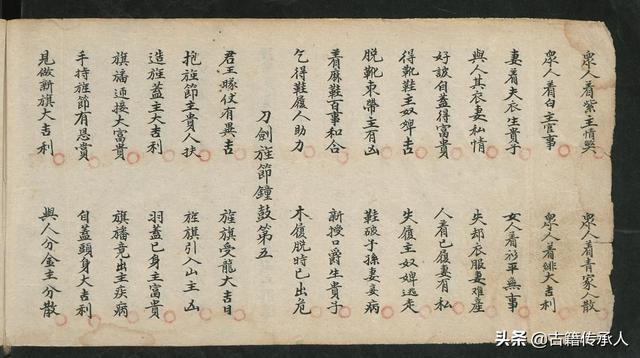 眾人着紫主情 眾人着青家人散
眾人着白主官事 眾人着緋大吉利
妻着夫衣生貴子 女人着衫平無事
與人其衣妻私情 失却衣服妻難產
好設自盖得富貴 人着己履妻有私
得靴鞋主奴婢吉 失履主奴婢逃走
脱靴束帶主有凶 鞋破子孫妻妾病
着麻鞋百事和合 新授口爵生貴子
乞得鞋履人助力 木履脱時已出危
刀劍旌節鐘鼓第五
君王隊仗有異吉 旌旗受龍大吉日
抱旌節主貴人扶 旌旗引入山主凶
造旌盖主大吉利 羽盖已身主富貴
旗旛迎接大富貴 旗旛竟出主疾病
手持旌節有恩貴 自盖頭身大吉利
見做新旗大吉利 與人分金主分散
头条 @古籍传承人